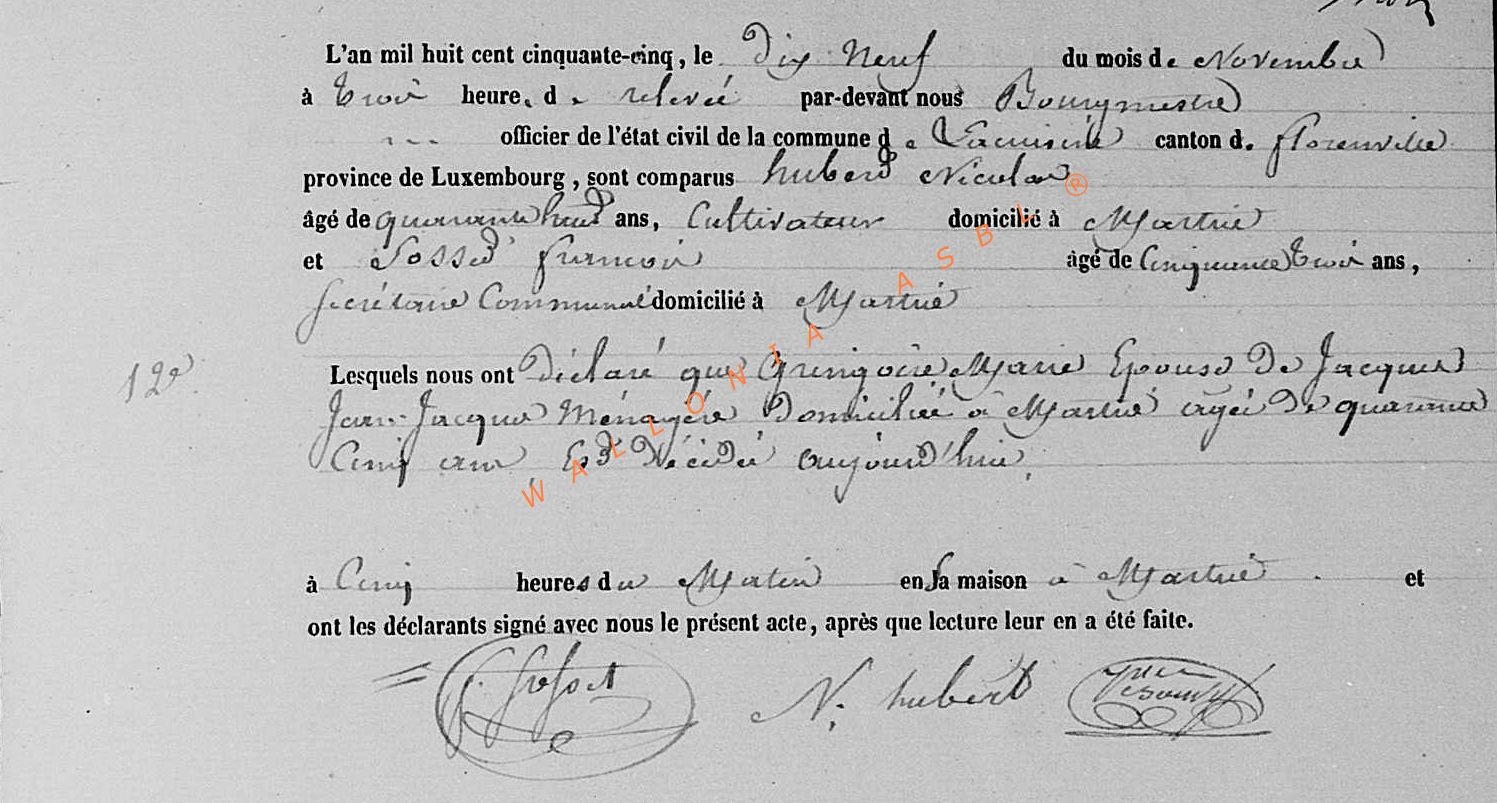 L'an mil huit cent cinquante-cinq, le Dix Neuf du mois de Novembre
à trois heures de relevée par-devant nous Bourgmestre
officier de l'état civil de la commune de canton de florenville
province de Luxembourg, sont comparus hubert Nicolas
âgé de quarante huit ans, Cultivateur domicilié à Martué
et Fosset françois âgé de Cinquante trois ans,
secrétaire Communal domicilié à Martué
12e
Lesquels nous ont Déclaré que Gringoire Marie Epouse De Jacques
Jean-Jacques Ménagère Domiciliée à Martué agée De quarante
Cinq ans Est Décédée aujourd'hui,
à Cinq heures du Matin en sa maison à Martué . et
ont les déclarants signé avec nous le présent acte, après que lecture leur en a été faite.
f. fosset N. hubert
WALLONIA ASBL ®